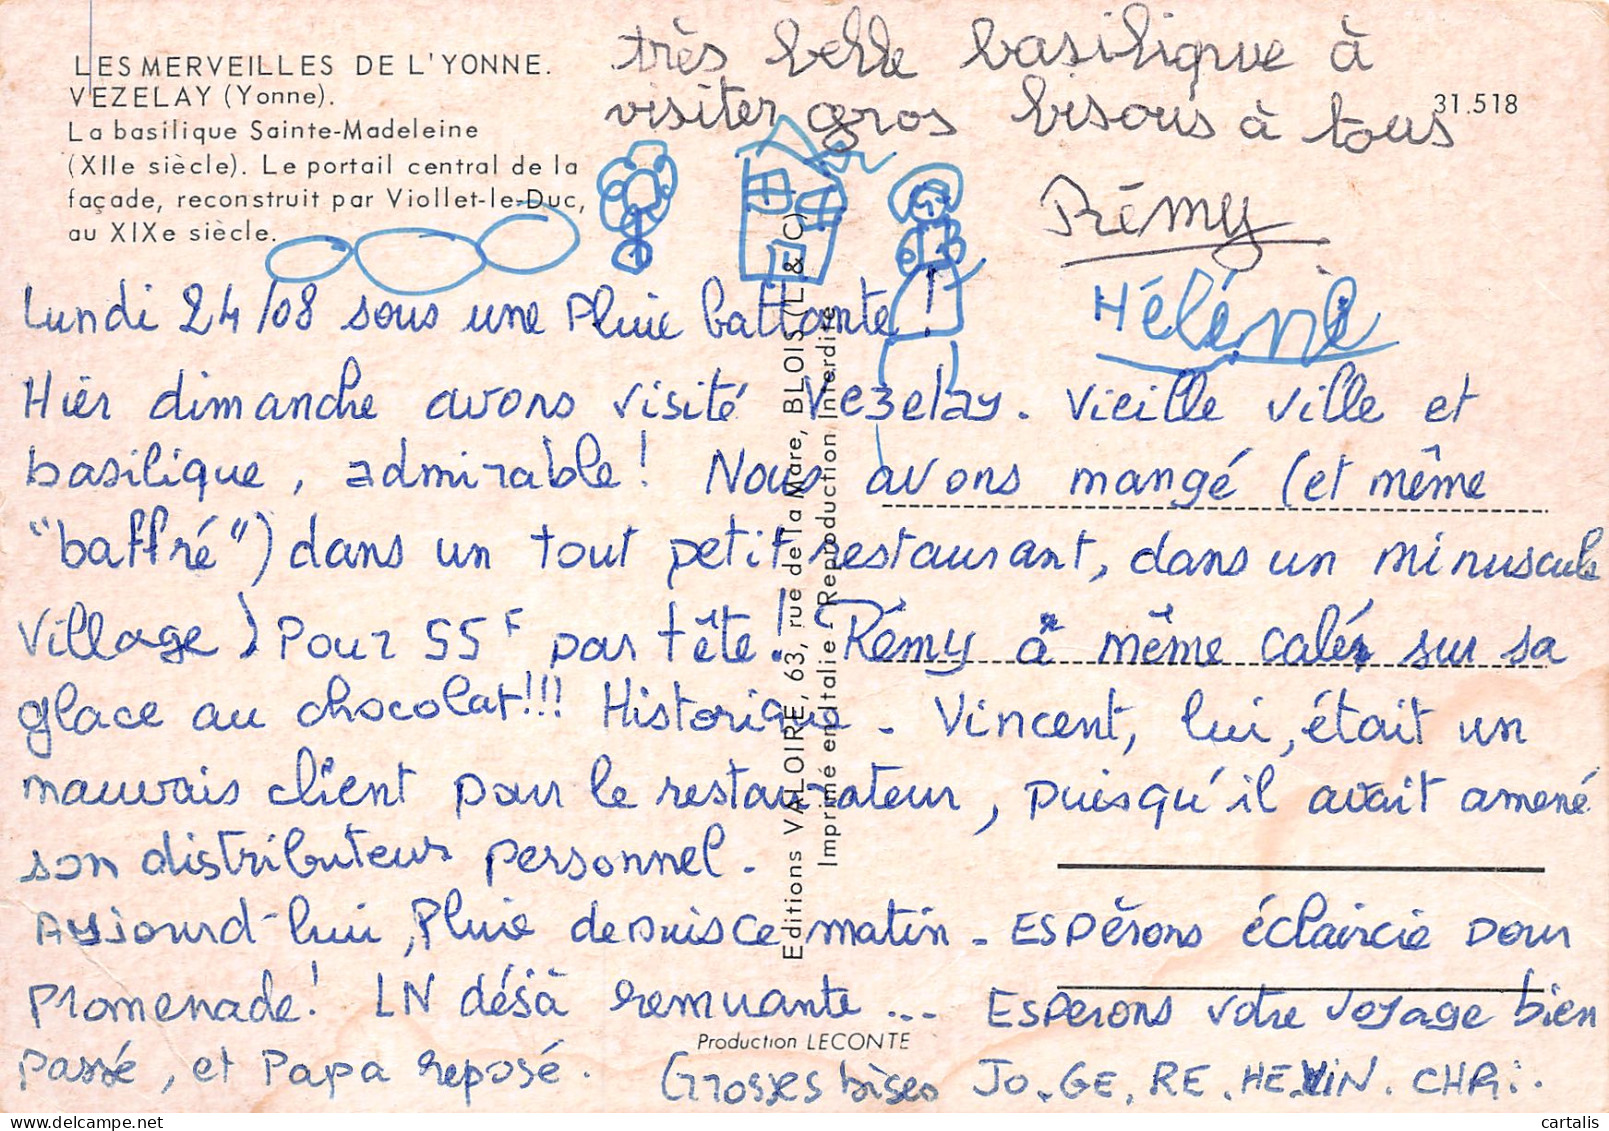 LES MERVEILLES DE L'YONNE.
VEZELAY (Yonne).
La basilique Sainte-Madeleine
(XIIe siècle). Le portail central de la
façade, reconstruit par Viollet-le-Duc,
au XIXe siècle.
31.518
très belle basilique à
visiter gros bisous à tous
Rémy
Hélène
Lundi 24/08 sous une Pluie battante !
Hier dimanche avons visité Vezelay. Vieille ville et
basilique, admirable ! Nous avons mangé (et même
"baffré") dans un tout petit restaurant, dans un minuscule
village) Pour 55F par tête ! Rémy a même calé sur sa
glace au chocolat!!! Historique. Vincent, lui, était un
mauvais client pour le restaurateur, puisqu'il avait amené
son distributeur personnel.
Aujourd-hui, Pluie depuis ce matin. ESPérons éclaircie pour
Promenade ! LN déjà remuante ... ESPerons votre voyage bien
passé, et Papa reposé. Grosses bises JO.GE, RE, HE.VIN. CHRi.
Editions VALOIRE, 63, rue de la Mare, BLOIS (L. & C)
Imprimé en Italie - Reproduction Interdite
Production LECONTE
cartalis